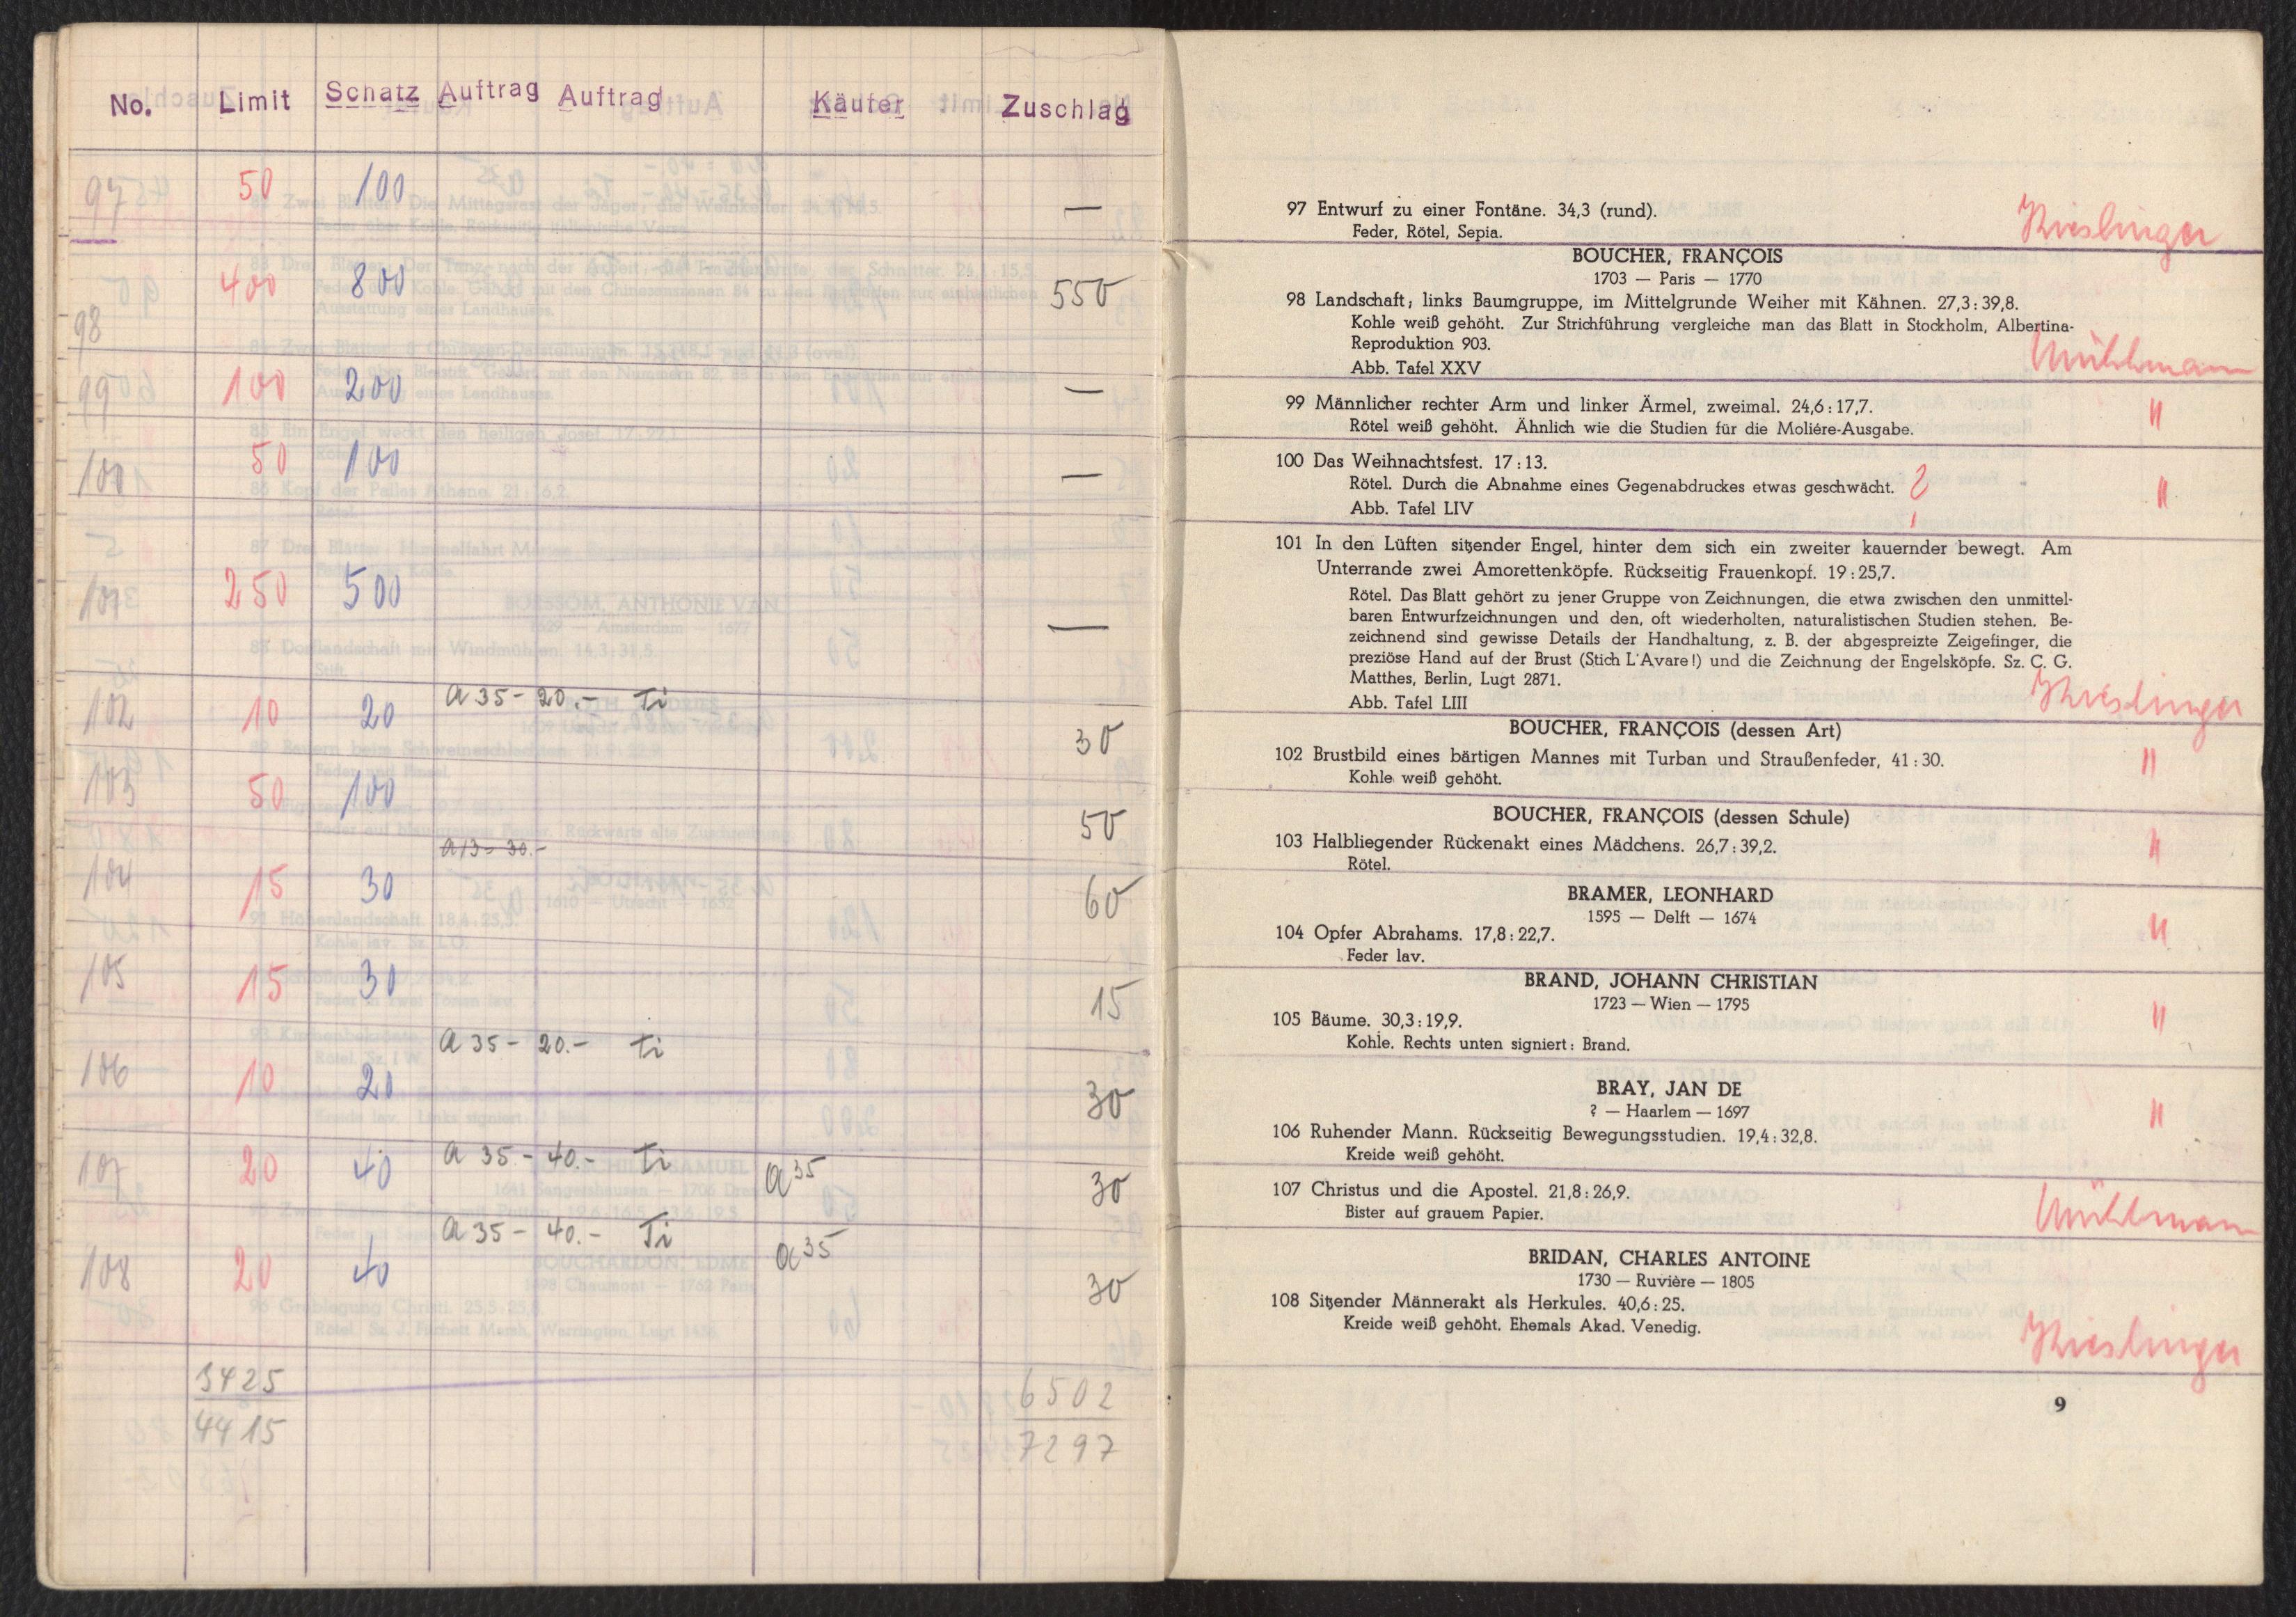 No. Limit Schatz Auftrag Auftrag Käufer Zuschlag
97 50 100 —
98 400 800 550
99 100 200 —
100 50 100 —
101 250 500 —
102 10 20 a 35 - 20.- Ti 30
103 50 100 50
a 13 - 30.-
104 15 30 60
105 15 30 15
106 10 20 a 35 - 20.- Ti 30
107 20 40 a 35 - 40.- Ti a 35 30
108 20 40 a 35 - 40.- Ti a 35 30
3425 6502
4415 7297
97 Entwurf zu einer Fontäne. 34,3 (rund).
Feder, Rötel, Sepia. Kieslinger
BOUCHER, FRANÇOIS
1703 — Paris — 1770
98 Landschaft; links Baumgruppe, im Mittelgrunde Weiher mit Kähnen. 27,3 : 39,8.
Kohle weiß gehöht. Zur Strichführung vergleiche man das Blatt in Stockholm, Albertina-
Reproduktion 903.
Abb. Tafel XXV Mühlmann
99 Männlicher rechter Arm und linker Ärmel, zweimal. 24,6 : 17,7. "
Rötel weiß gehöht. Ähnlich wie die Studien für die Moliére-Ausgabe.
100 Das Weihnachtsfest. 17 : 13.
Rötel. Durch die Abnahme eines Gegenabdruckes etwas geschwächt. ? "
Abb. Tafel LIV
101 In den Lüften sitzender Engel, hinter dem sich ein zweiter kauernder bewegt. Am
Unterrande zwei Amorettenköpfe. Rückseitig Frauenkopf. 19 : 25,7.
Rötel. Das Blatt gehört zu jener Gruppe von Zeichnungen, die etwa zwischen den unmittel-
baren Entwurfzeichnungen und den, oft wiederholten, naturalistischen Studien stehen. Be-
zeichnend sind gewisse Details der Handhaltung, z. B. der abgespreizte Zeigefinger, die
preziöse Hand auf der Brust (Stich L'Avare!) und die Zeichnung der Engelsköpfe. Sz. C. G.
Matthes, Berlin, Lugt 2871.
Abb. Tafel LIII Kieslinger
BOUCHER, FRANÇOIS (dessen Art)
102 Brustbild eines bärtigen Mannes mit Turban und Straußenfeder, 41 : 30. "
Kohle weiß gehöht.
BOUCHER, FRANÇOIS (dessen Schule)
103 Halbliegender Rückenakt eines Mädchens. 26,7 : 39,2. "
Rötel.
BRAMER, LEONHARD
1595 — Delft — 1674
104 Opfer Abrahams. 17,8 : 22,7. "
Feder lav.
BRAND, JOHANN CHRISTIAN
1723 — Wien — 1795
105 Bäume. 30,3 : 19,9. "
Kohle. Rechts unten signiert: Brand.
BRAY, JAN DE
? — Haarlem — 1697 "
106 Ruhender Mann. Rückseitig Bewegungsstudien. 19,4 : 32,8.
Kreide weiß gehöht.
107 Christus und die Apostel. 21,8 : 26,9.
Bister auf grauem Papier. Mühlmann
BRIDAN, CHARLES ANTOINE
1730 — Ruvière — 1805
108 Sitzender Männerakt als Herkules. 40,6 : 25.
Kreide weiß gehöht. Ehemals Akad. Venedig. Kieslinger
9